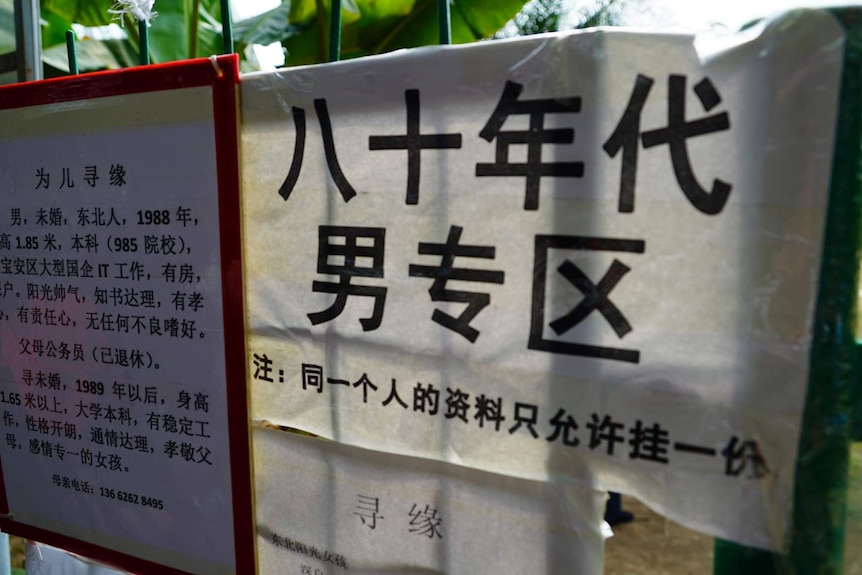 为儿寻缘
男，未婚，东北人，1988 年，
高 1.85 米，本科（985 院校），
宝安区大型国企 IT 工作，有房，
户。阳光帅气，知书达理，有孝
，有责任心，无任何不良嗜好。
父母公务员（已退休）。
寻未婚，1989 年以后，身高
1.65 米以上，大学本科，有稳定工
作，性格开朗，通情达理，孝敬父
母，感情专一的女孩。
母亲电话：136 6262 8495
八十年代
男专区
注：同一个人的资料只允许挂一份
寻缘
东北阳光女孩